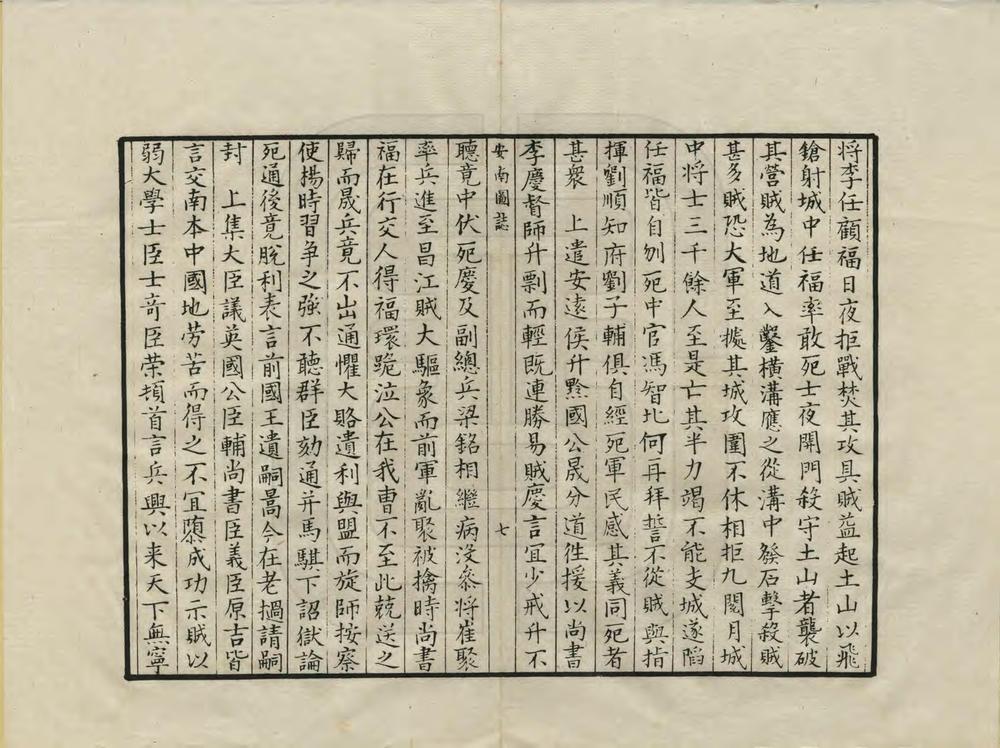 将李任顧福日夜拒戰焚其攻具賊益起土山以飛
鎗射城中任福率敢死士夜開門殺守土山者襲破
其營賊為地道入鑿橫溝應之從溝中發石擊殺賊
甚多賊恐大軍至擬其城攻圍不休相拒九閱月城
中将士三千餘人至是亡其半力竭不能支城遂陷
任福皆自刎死中官馮智北何再拜誓不從賊與指
揮劉順知府劉子輔俱自經死軍民感其義同死者
甚衆　上遣安遠侯升黔國公晟分道徃援以尚書
李慶督師升剽而輕既連勝易賊慶言宜少戒升不
安南圖誌　七
聽竟中伏死慶及副總兵梁銘相繼病沒叅将崔聚
率兵進至昌江賊大驅象而前軍亂聚被擒時尚書
福在行交人得福環跪泣公在我曹不至此兢送之
歸而晟兵竟不出通懼大賂遺利與盟而旋師按察
使楊時習争之強不聽群臣劾通并馬騏下詔獄論
死通後竟脫利表言前國王遺嗣暠今在老撾請嗣
封　上集大臣議英國公臣輔尚書臣義臣原吉皆
言交南本中國地劳苦而得之不宜隳成功示賊以
弱大學士臣士竒臣荣頓首言兵興以来天下無寧